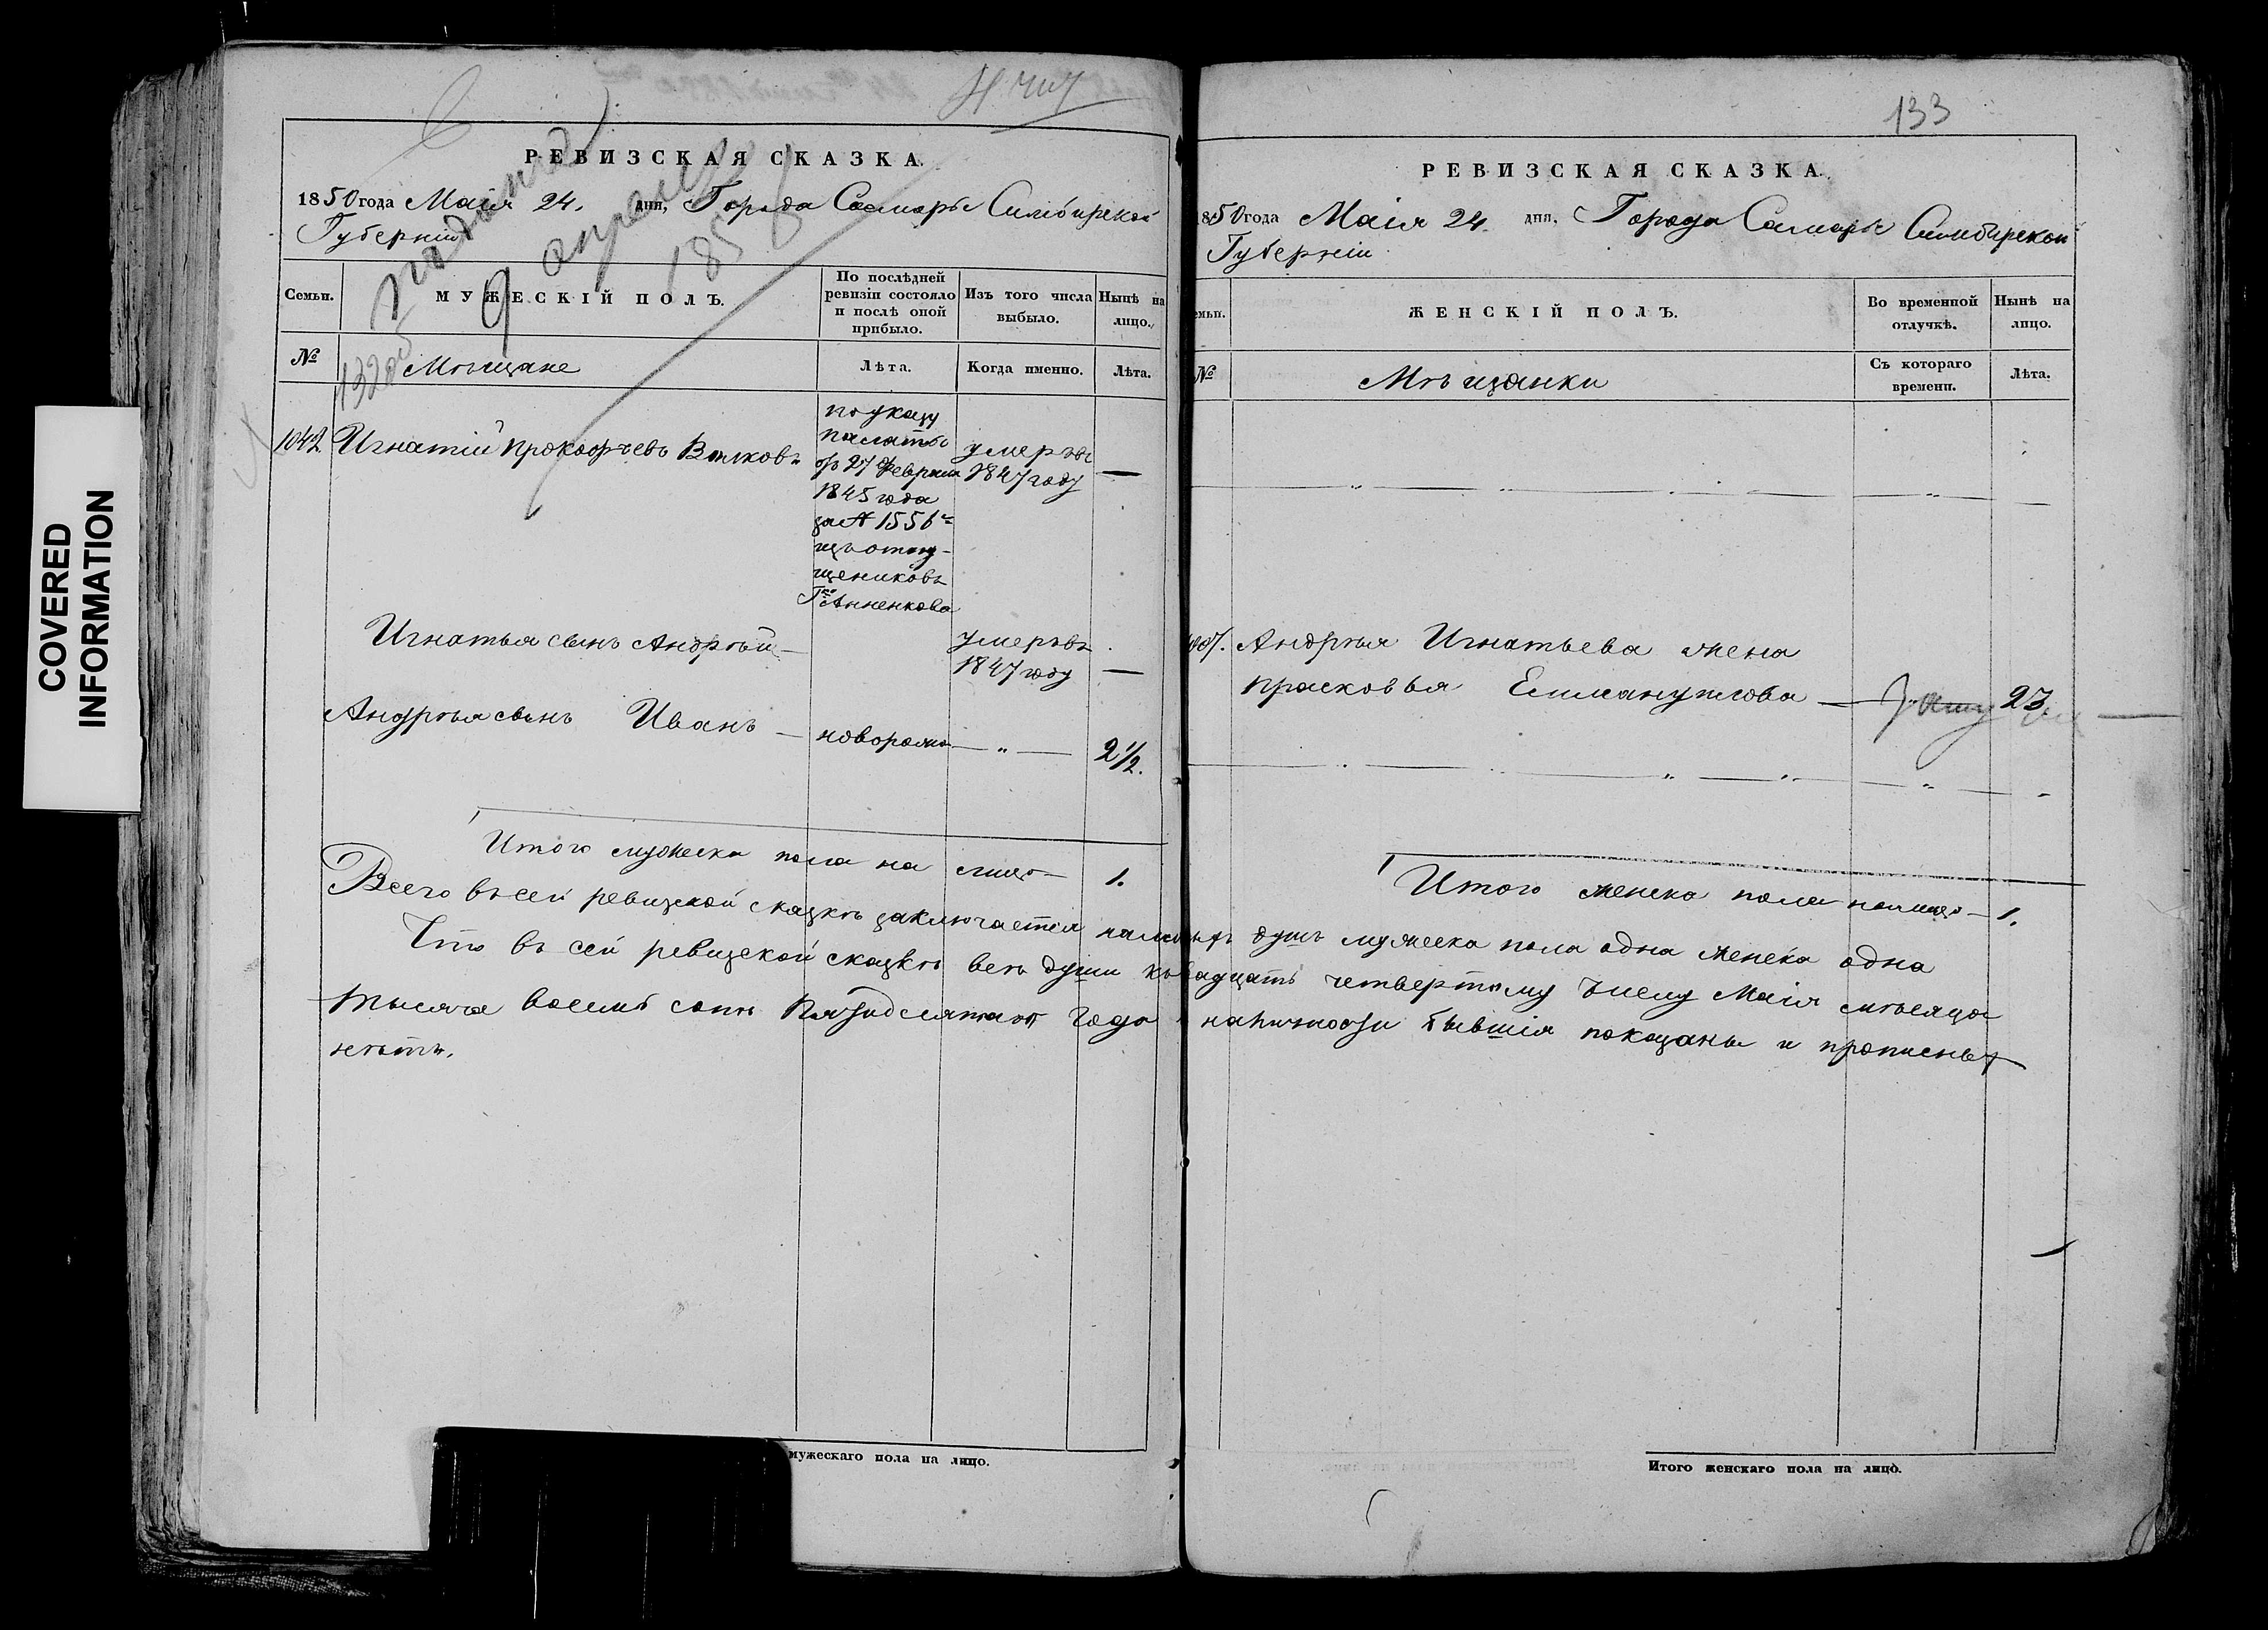 COVERED
INFORMATION
133
РЕВИЗСКАЯ СКАЗКА.
1850 года Маія 24. дня, Города Самары Симбирской
Губерніи
Семьи.
МУЖЕСКІЙ ПОЛЪ.
По послѣдней
ревизіи состояло
и послѣ оной
прибыло.
Изъ того числа
выбыло.
Нынѣ на
лицо.
№
Мѣщане
Лѣта.
Когда именно.
Лѣта.
9 апреля
185
1042
Игнатій Прокофьевъ Волковъ
по указу
палаты
отъ 27 Февраля
1845 года
за № 1556
изъ отпу-
щениковъ
Гна Анненкова
умеръ
1847 году
—
Игнатья сынъ Андрѣй —
умеръ
1847 году
—
Андрѣя сынъ Иванъ —
новорожд
— „ —
2 1/2.
Итого мужеска пола на лицо — 1.
РЕВИЗСКАЯ СКАЗКА.
1850 года Маія 24. дня, Города Самары Симбирской
Губерніи
Семьи.
ЖЕНСКІЙ ПОЛЪ.
Во временной
отлучкѣ.
Нынѣ на
лицо.
№
Мѣщанки
Съ котораго
времени.
Лѣта.
Андрѣя Игнатьева жена
Прасковья Еммануилова — 23
Итого женска пола на лицо — 1.
Всего въ сей ревизской сказкѣ заключается наличныхъ душъ мужеска пола одна женска одна
Что въ сей ревизской сказкѣ всѣ души къ двадцать четвертому числу Маія мѣсяца
тысяча восемь сотъ пятидесятаго года в наличности бывшія показаны и прописныхъ
нѣтъ.
мужескаго пола на лицо.
Итого женскаго пола на лицо.